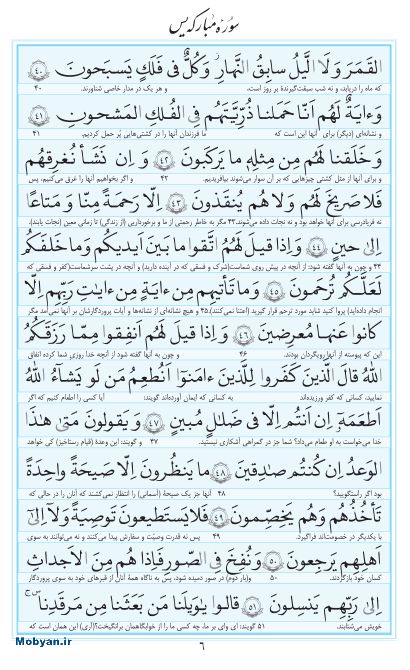 سورهٔ مبارکه یس
القَمَرَ وَلَا الَّيلُ سابِقُ النَّهارِ وَكُلٌّ فى فَلَكٍ يَسبَحونَ ﴿٤٠﴾
که ماه را دریابد، و نه شب سبقت‌گیرندهٔ بر روز است، و هر یک در مدار خاصی شناورند. ۴۰
وَءايَةٌ لَهُم اَنّا حَمَلنا ذُرِّيَّتَهُم فِى الفُلكِ المَشحونِ ﴿٤١﴾
و نشانه‌ای (دیگر) برای آنها این است که ما فرزندان آنها را در کشتی‌هایی پُر حمل کردیم. ۴۱
وَ خَلَقنا لَهُم مِن مِثلِهِ ما يَركَبونَ ﴿٤٢﴾ وَ اِن نَشَأ نُغرِقهُم
و برای آنها از مثل کشتی چیزهایی که بر آن سوار می‌شوند بیافریدیم. ۴۲ و اگر بخواهیم آنها را غرق می‌کنیم، پس
فَلا صَريخَ لَهُم وَلا هُم يُنقَذونَ ﴿٤٣﴾ اِلّا رَحمَةً مِنّا وَ مَتاعًا
نه فریادرسی برای آنها خواهد بود و نه نجات داده می‌شوند.۴۳ مگر به خاطر رحمتی از ما و برخورداریی (از زندگی) تا زمانی معین (نجات یابند).
اِلىٰ حينٍ ﴿٤٤﴾ وَاِذا قيلَ لَهُمُ اتَّقوا ما بَينَ اَيديكُم وَما خَلفَكُم
۴۴ و چون به آنها گفته شود: از آنچه در پیش روی شماست(شرک و فسقی که در آینده دارید) و آنچه در پشت سرشماست(کفر و فسقی که
لَعَلَّكُم تُرحَمونَ ﴿٤٥﴾ وَما تَأتيهِم مِن ءايَةٍ مِن ءاياتِ رَبِّهِم اِلّا
انجام داده‌اید) پروا کنید شاید مورد ترحم قرار گیرید (اعتنا نمی‌کنند).۴۵ و هیچ نشانه‌ای از نشانه‌ها و آیات پروردگارشان بر آنها نمی‌آمد مگر
كانوا عَنها مُعرِضينَ ﴿٤٦﴾ وَ اِذا قيلَ لَهُم اَنفِقوا مِمّا رَزَقَكُمُ
این که پیوسته از آنها رویگردان بودند. ۴۶ و چون به آنها گفته شود از آنچه خدا روزی شما کرده انفاق
اللهُ قالَ الَّذينَ كَفَروا لِلَّذينَ ءامَنوا اَنُطعِمُ مَن لَو يَشاءُ اللهُ
نمایید، کسانی که کفر ورزیده‌اند به کسانی که ایمان آورده‌اند گویند: آیا کسی را اطعام کنیم که اگر
اَطعَمَهُ اِن اَنتُم اِلّا فى ضَلالٍ مُبينٍ ﴿٤٧﴾ وَ يَقولونَ مَتىٰ هٰذَا
خدا می‌خواست به او طعام می‌داد؟ شما جز در گمراهی آشکاری نیستید. ۴۷ و گویند: این وعدهٔ (قیام رستاخیز) کی خواهد
الوَعدُ اِن كُنتُم صادِقينَ ﴿٤٨﴾ ما يَنظُرونَ اِلّا صَيحَةً واحِدَةً
بود اگر راستگویید؟ ۴۸ آنها جز یک صیحهٔ (آسمانی) را انتظار نمی‌کشند که آنان را در حالی که
تَأخُذُهُم وَ هُم يَخِصِّمونَ ﴿٤٩﴾ فَلا يَستَطيعونَ تَوصِيَةً وَلا اِلىٰ
با یکدیگر در خصومت‌اند فراگیرد. ۴۹ پس نه قدرت وصیّت و سفارش پیدا می‌کنند و نه می‌توانند به سوی
اَهلِهِم يَرجِعونَ ﴿٥٠﴾ وَ نُفِخَ فِى الصّورِ فَاِذا هُم مِنَ الاَجداثِ
کسان خود بازگردند. ۵۰ و(بار دوم) در صور دمیده شود، پس به ناگاه همهٔ آنان از قبرهای خود به سوی پروردگار
اِلىٰ رَبِّهِم يَنسِلونَ ﴿٥١﴾ قالوا يٰوَيلَنا مَن بَعَثَنا مِن مَرقَدِنا
خویش می‌شتابند. ۵۱ گویند: ای وای بر ما، چه کسی ما را از خوابگاهمان برانگیخت؟(آری) این همان است که
۶
Mobyan.ir